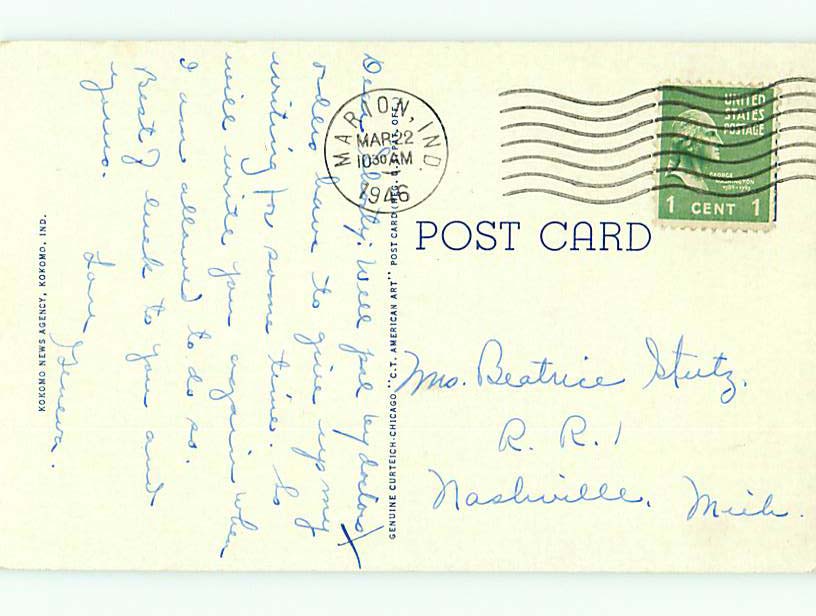 Dear
Well pal by doctors
orders have to give up my
writing for some time. So
will write you again when
I am allowed to do so.
Best of luck to you and
yours.
Love Geneva.
KOKOMO NEWS AGENCY, KOKOMO, IND.
GENUINE CURTEICH-CHICAGO "C.T. AMERICAN ART" POST CARD (REG. U.S. PAT. OFF.)
MARION, IND.
MAR 22
10 30 AM
1946
UNITED
STATES
POSTAGE
GEORGE
WASHINGTON
1 CENT 1
POST CARD
Mrs. Beatrice Stutz.
R. R. 1
Nashville, Mich.